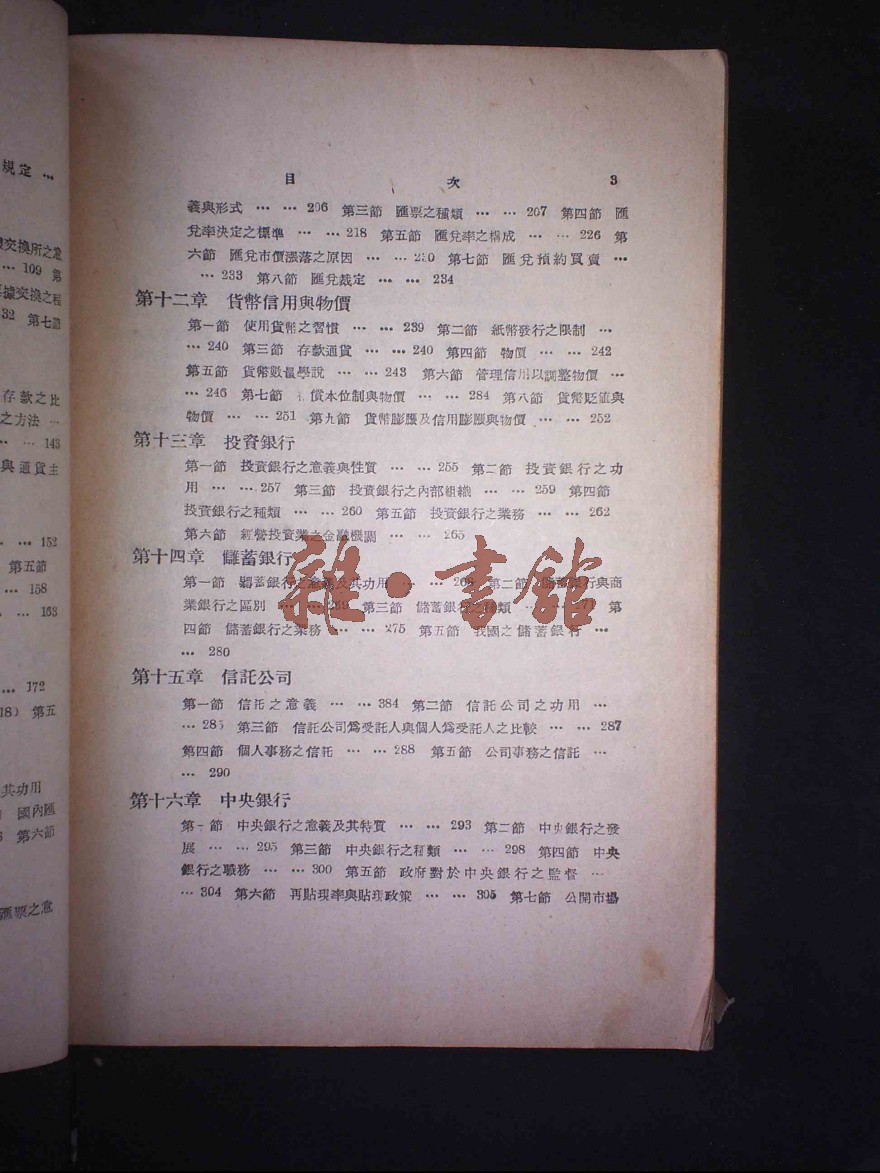 規定 …
交換所之意
… 109 第
據交換之程
32 第七節
存款之比
之方法 …
… … 143
與通貨主
… … 152
第五節
… 158
… 163
… 172
18) 第五
其功用
國內匯
第六節
匯票之意
目 次 3
義與形式 … … 206 第三節 匯票之種類 … … 207 第四節 匯
兌率決定之標準 … … 218 第五節 匯兌率之構成 … … 226 第
六節 匯兌市價漲落之原因 … … 230 第七節 匯兌預約買賣 …
… 233 第八節 匯兌裁定 … … 234
第十二章 貨幣信用與物價
第一節 使用貨幣之習慣 … … 239 第二節 紙幣發行之限制 …
… 240 第三節 存款通貨 … … 240 第四節 物價 … … 242
第五節 貨幣數量學說 … … 243 第六節 管理信用以調整物價 …
… 246 第七節 償本位制與物價 … … 284 第八節 貨幣貶值與
物價 … … 251 第九節 貨幣膨脹及信用膨脹與物價 … … 252
第十三章 投資銀行
第一節 投資銀行之意義與性質 … … 255 第二節 投資銀行之功
用 … … 257 第三節 投資銀行之內部組織 … … 259 第四節
投資銀行之種類 … … 260 第五節 投資銀行之業務 … … 262
第六節 經營投資業之金融機關 … … 265
第十四章 儲蓄銀行
第一節 儲蓄銀行之意義及其功用 … … 268 第二節 儲蓄銀行與商
業銀行之區別 … … 269 第三節 儲蓄銀行之種類 … … 271 第
四節 儲蓄銀行之業務 … … 275 第五節 我國之儲蓄銀行 …
… 280
第十五章 信託公司
第一節 信託之意義 … … 384 第二節 信託公司之功用 …
… 285 第三節 信託公司爲受託人與個人爲受託人之比較 … … 287
第四節 個人事務之信託 … … 288 第五節 公司事務之信託 …
… 290
第十六章 中央銀行
第一節 中央銀行之意義及其特質 … … 293 第二節 中央銀行之發
展 … … 295 第三節 中央銀行之種類 … … 298 第四節 中央
銀行之職務 … … 300 第五節 政府對於中央銀行之監督 …
… 304 第六節 再貼現率與貼現政策 … … 305 第七節 公開市場
雜·書館